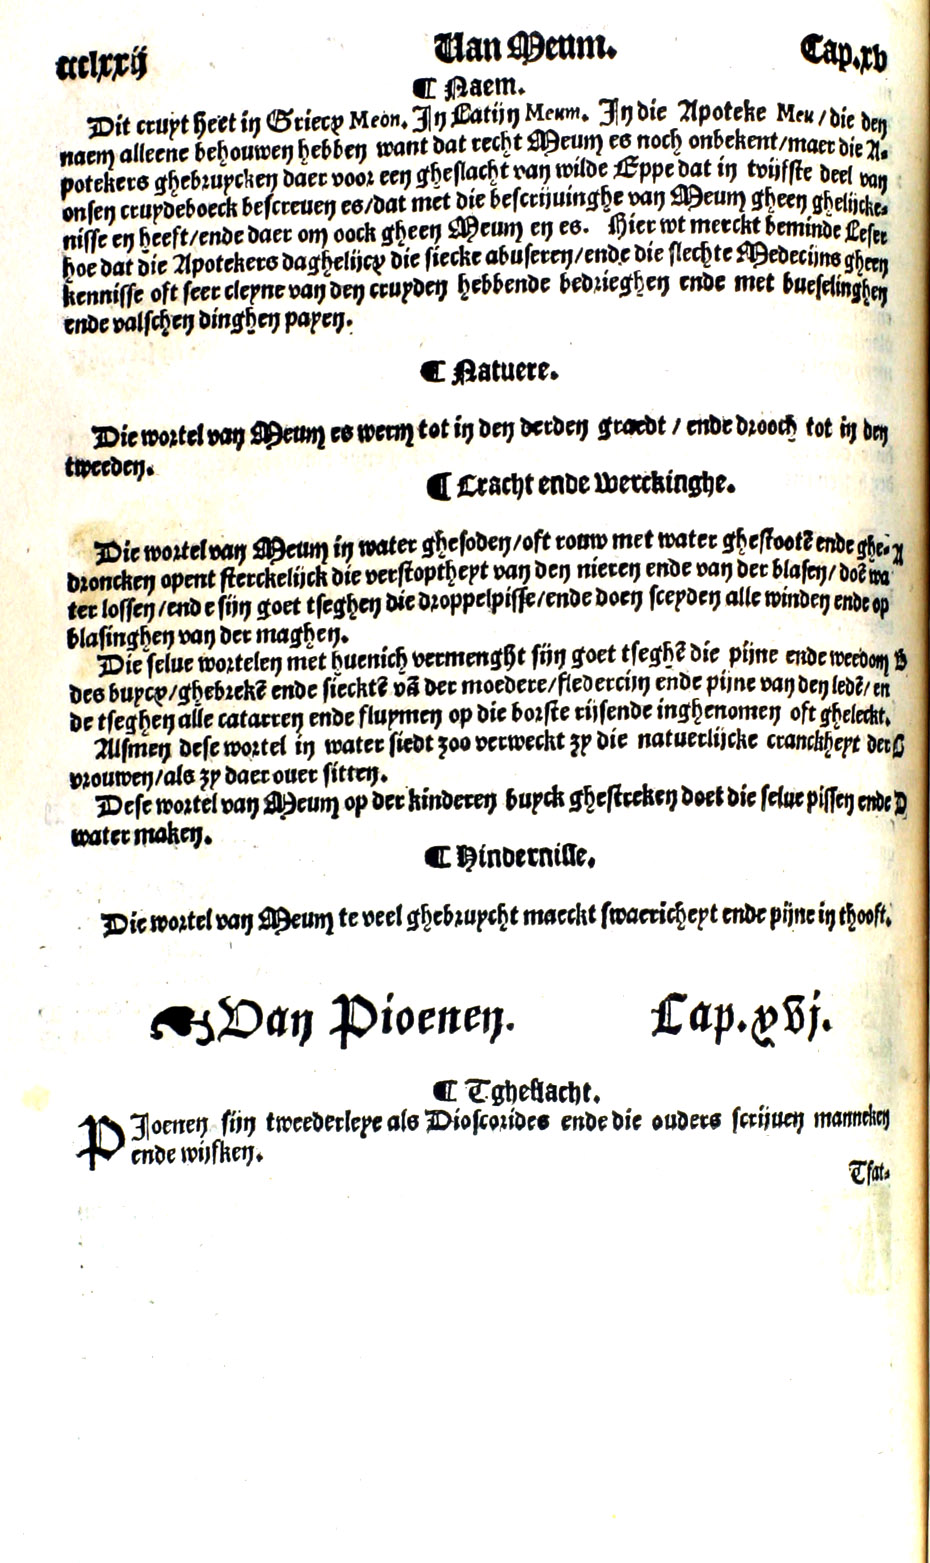 ccclxxij Uan Meum. Cap.xv
¶ Naem.
Dit cruyt heet in Griecx Meon. In Latijn Meum. In die Apoteke Meu/die den
naem alleene behouwen hebben want dat recht Meum es noch onbekent/maer die A-
potekers ghebruycken daer voor een gheslacht van wilde Eppe dat in tvijfste deel van
onsen cruydeboeck bescreuen es/dat met die bescrijuinghe van Meum gheen ghelijcke-
nisse en heeft/ende daer om oock gheen Meum en es. Hier wt merckt beminde Leser
hoe dat die Apotekers daghelijcx die siecke abuseren/ende die slechte Medecijns gheen
kennisse oft seer cleyne van den cruyden hebbende bedrieghen ende met bueselinghen
ende valschen dinghen payen.
¶ Natuere.
Die wortel van Meum es werm tot in den derden graedt / ende drooch tot in den
tweeden.
¶ Cracht ende Werckinghe.
Die wortel van Meum in water ghesoden/oft rouw met water ghestootē ende ghe- A
droncken opent sterckelijck die verstoptheyt van den nieren ende van der blasen/doē wa
ter lossen/ende sijn goet tseghen die droppelpisse/ende doen sceyden alle winden ende op
blasinghen van der maghen.
Die selue wortelen met huenich vermenght sijn goet tseghē die pijne ende weedom B
des buycx/ghebrekē ende siecktē vā der moedere/fledercijn ende pijne van den ledē/en
de tseghen alle catarren ende fluymen op die borste rijsende inghenomen oft gheleckt.
Alsmen dese wortel in water siedt zoo verweckt zy die natuerlijcke cranckheyt der C
vrouwen/als zy daer ouer sitten.
Dese wortel van Meum op der kinderen buyck ghestreken doet die selue pissen ende D
water maken.
¶ Hindernisse.
Die wortel van Meum te veel ghebruycht maeckt swaericheyt ende pijne in thooft.
☙ Van Pioenen. Cap.xvj.
¶ Tgheslacht.
PIoenen sijn tweederleye als Dioscorides ende die ouders scrijuen manneken
ende wijfken.
Tfat-